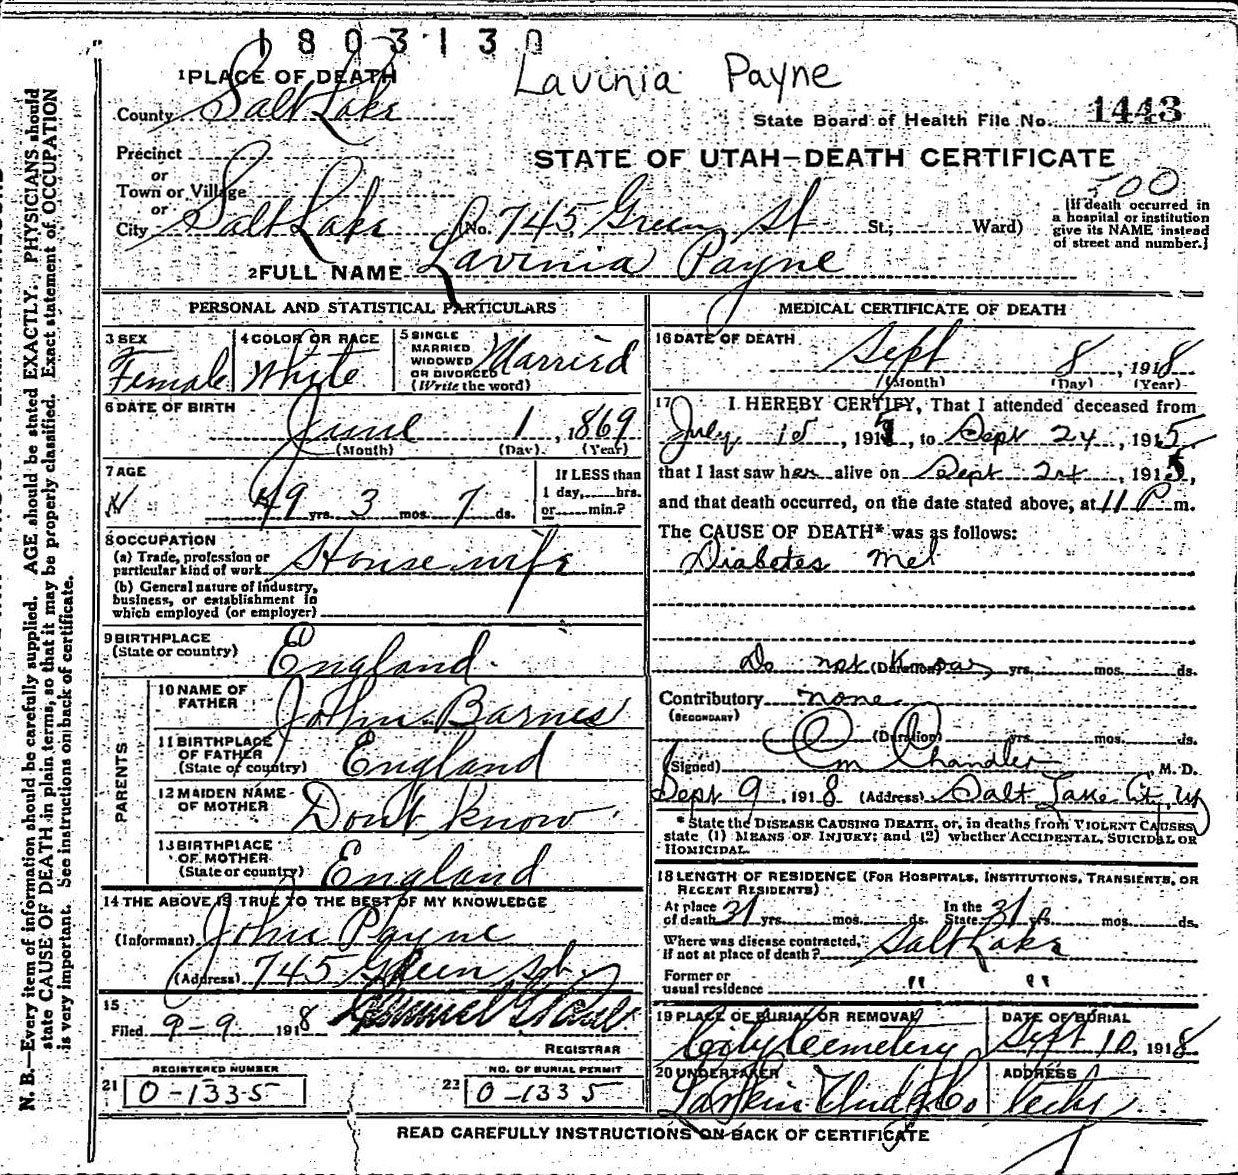 1803130
Lavinia Payne
1 PLACE OF DEATH
County Salt Lake
State Board of Health File No. 1443
Precinct
or
Town or Village
or
City Salt Lake (No. 745 Green St St; Ward)
STATE OF UTAH—DEATH CERTIFICATE
500
[If death occurred in
a hospital or institution
give its NAME instead
of street and number.]
2 FULL NAME Lavinia Payne
PERSONAL AND STATISTICAL PARTICULARS
3 SEX
Female
4 COLOR OR RACE
White
5 SINGLE
MARRIED
WIDOWED
OR DIVORCED
(Write the word)
Married
6 DATE OF BIRTH
June 1, 1869
(Month) (Day) (Year)
7 AGE
49 yrs. 3 mos. 7 ds.
If LESS than
1 day, hrs.
or min.?
8 OCCUPATION
(a) Trade, profession or
particular kind of work House wife
(b) General nature of industry,
business, or establishment in
which employed (or employer)
9 BIRTHPLACE
(State or country) England
PARENTS
10 NAME OF
FATHER John Barnes
11 BIRTHPLACE
OF FATHER
(State or country) England
12 MAIDEN NAME
OF MOTHER Dont know
13 BIRTHPLACE
OF MOTHER
(State or country) England
14 THE ABOVE IS TRUE TO THE BEST OF MY KNOWLEDGE
(Informant) John Payne
(Address) 745 Green St.
15
Filed 9-9 1918
REGISTRAR
REGISTERED NUMBER
21 0-1335
NO. OF BURIAL PERMIT
22 0-1335
MEDICAL CERTIFICATE OF DEATH
16 DATE OF DEATH
Sept 8, 1918
(Month) (Day) (Year)
17 I HEREBY CERTIFY, That I attended deceased from
July 15, 1915, to Sept 24, 1915
that I last saw her alive on Sept 24, 1915,
and that death occurred, on the date stated above, at 11 P m.
The CAUSE OF DEATH* was as follows:
Diabetes Mel
Do not Know (Duration) yrs. mos. ds.
Contributory none
(SECONDARY)
(Duration) yrs. mos. ds.
(Signed) Chandler, M. D.
Sept 9, 1918 (Address) Salt Lake City, Ut
* State the DISEASE CAUSING DEATH, or, in deaths from VIOLENT CAUSES
state (1) MEANS OF INJURY; and (2) whether ACCIDENTAL, SUICIDAL OR
HOMICIDAL.
18 LENGTH OF RESIDENCE (FOR HOSPITALS, INSTITUTIONS, TRANSIENTS, OR
RECENT RESIDENTS)
At place
of death 31 yrs. mos. ds.
In the
State 31 mos. ds.
Where was disease contracted,
if not at place of death? Salt Lake
Former or
usual residence " "
19 PLACE OF BURIAL OR REMOVAL
City Cemetery
DATE OF BURIAL
Sept 10, 1918
20 UNDERTAKER
Larkin Undg Co
ADDRESS
City
READ CAREFULLY INSTRUCTIONS ON BACK OF CERTIFICATE
N. B.—Every item of information should be carefully supplied. AGE should be stated EXACTLY. PHYSICIANS should
state CAUSE OF DEATH in plain terms, so that it may be properly classified. Exact statement of OCCUPATION
is very important. See instructions on back of certificate.